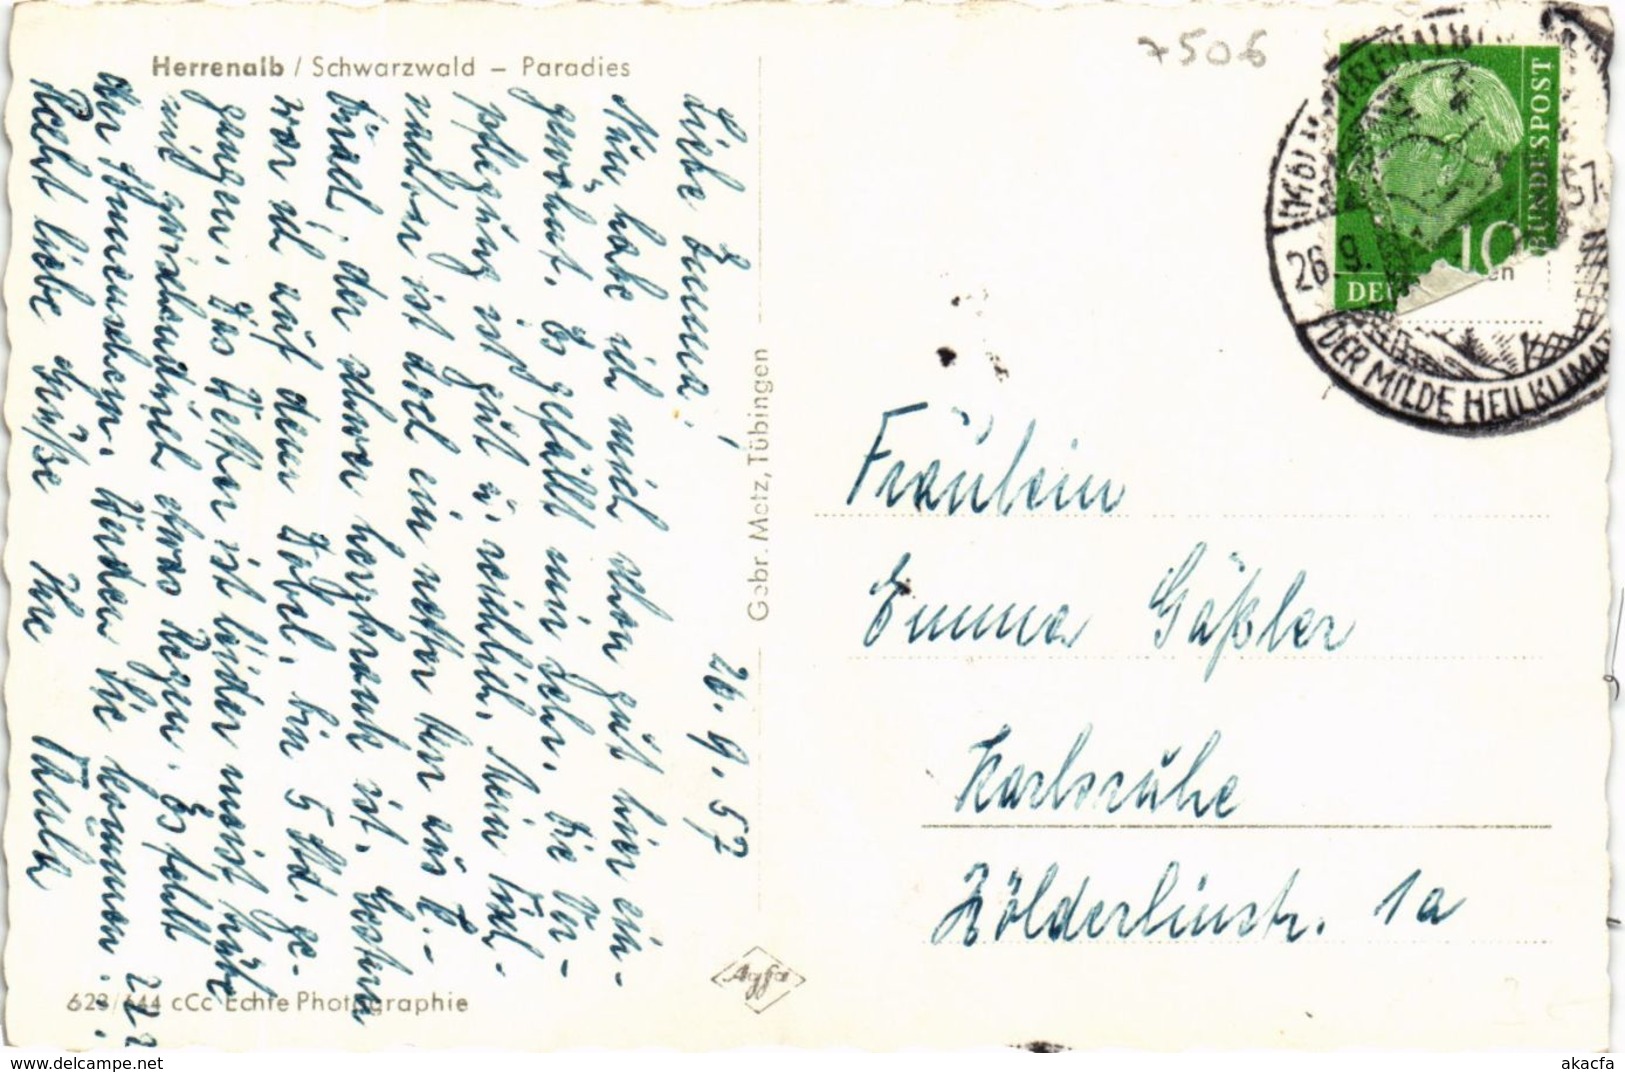 Herrenalb / Schwarzwald – Paradies
7506
26.9.57
Liebe Emma!
Nun habe ich mich schon gut hier ein-
gewöhnt. Es gefällt mir sehr. Die Ver-
pflegung ist gut u. reichlich. Mein Tisch-
nachbar ist doch ein netter Herr aus K.-
der schwer herzkrank ist. Gestern
war ich auf dem Dobel, bin 5 Std. ge-
gangen. Das Wetter ist leider meist trübe
mit zwischendurch etwas Regen. Es fehlt
der Sonnenschein. Würden Sie kommen???
Recht liebe Grüße Ihre
Gebr. Metz, Tübingen
BUNDESPOST
10
26.9.
57
DER MILDE HEILKLIMA
Fräulein
Emma Gäßler
Karlsruhe
Hölderlinstr. 1a
Agfa
623/644 cCc Echte Photographie
akpool-delcampe.net
akacfa